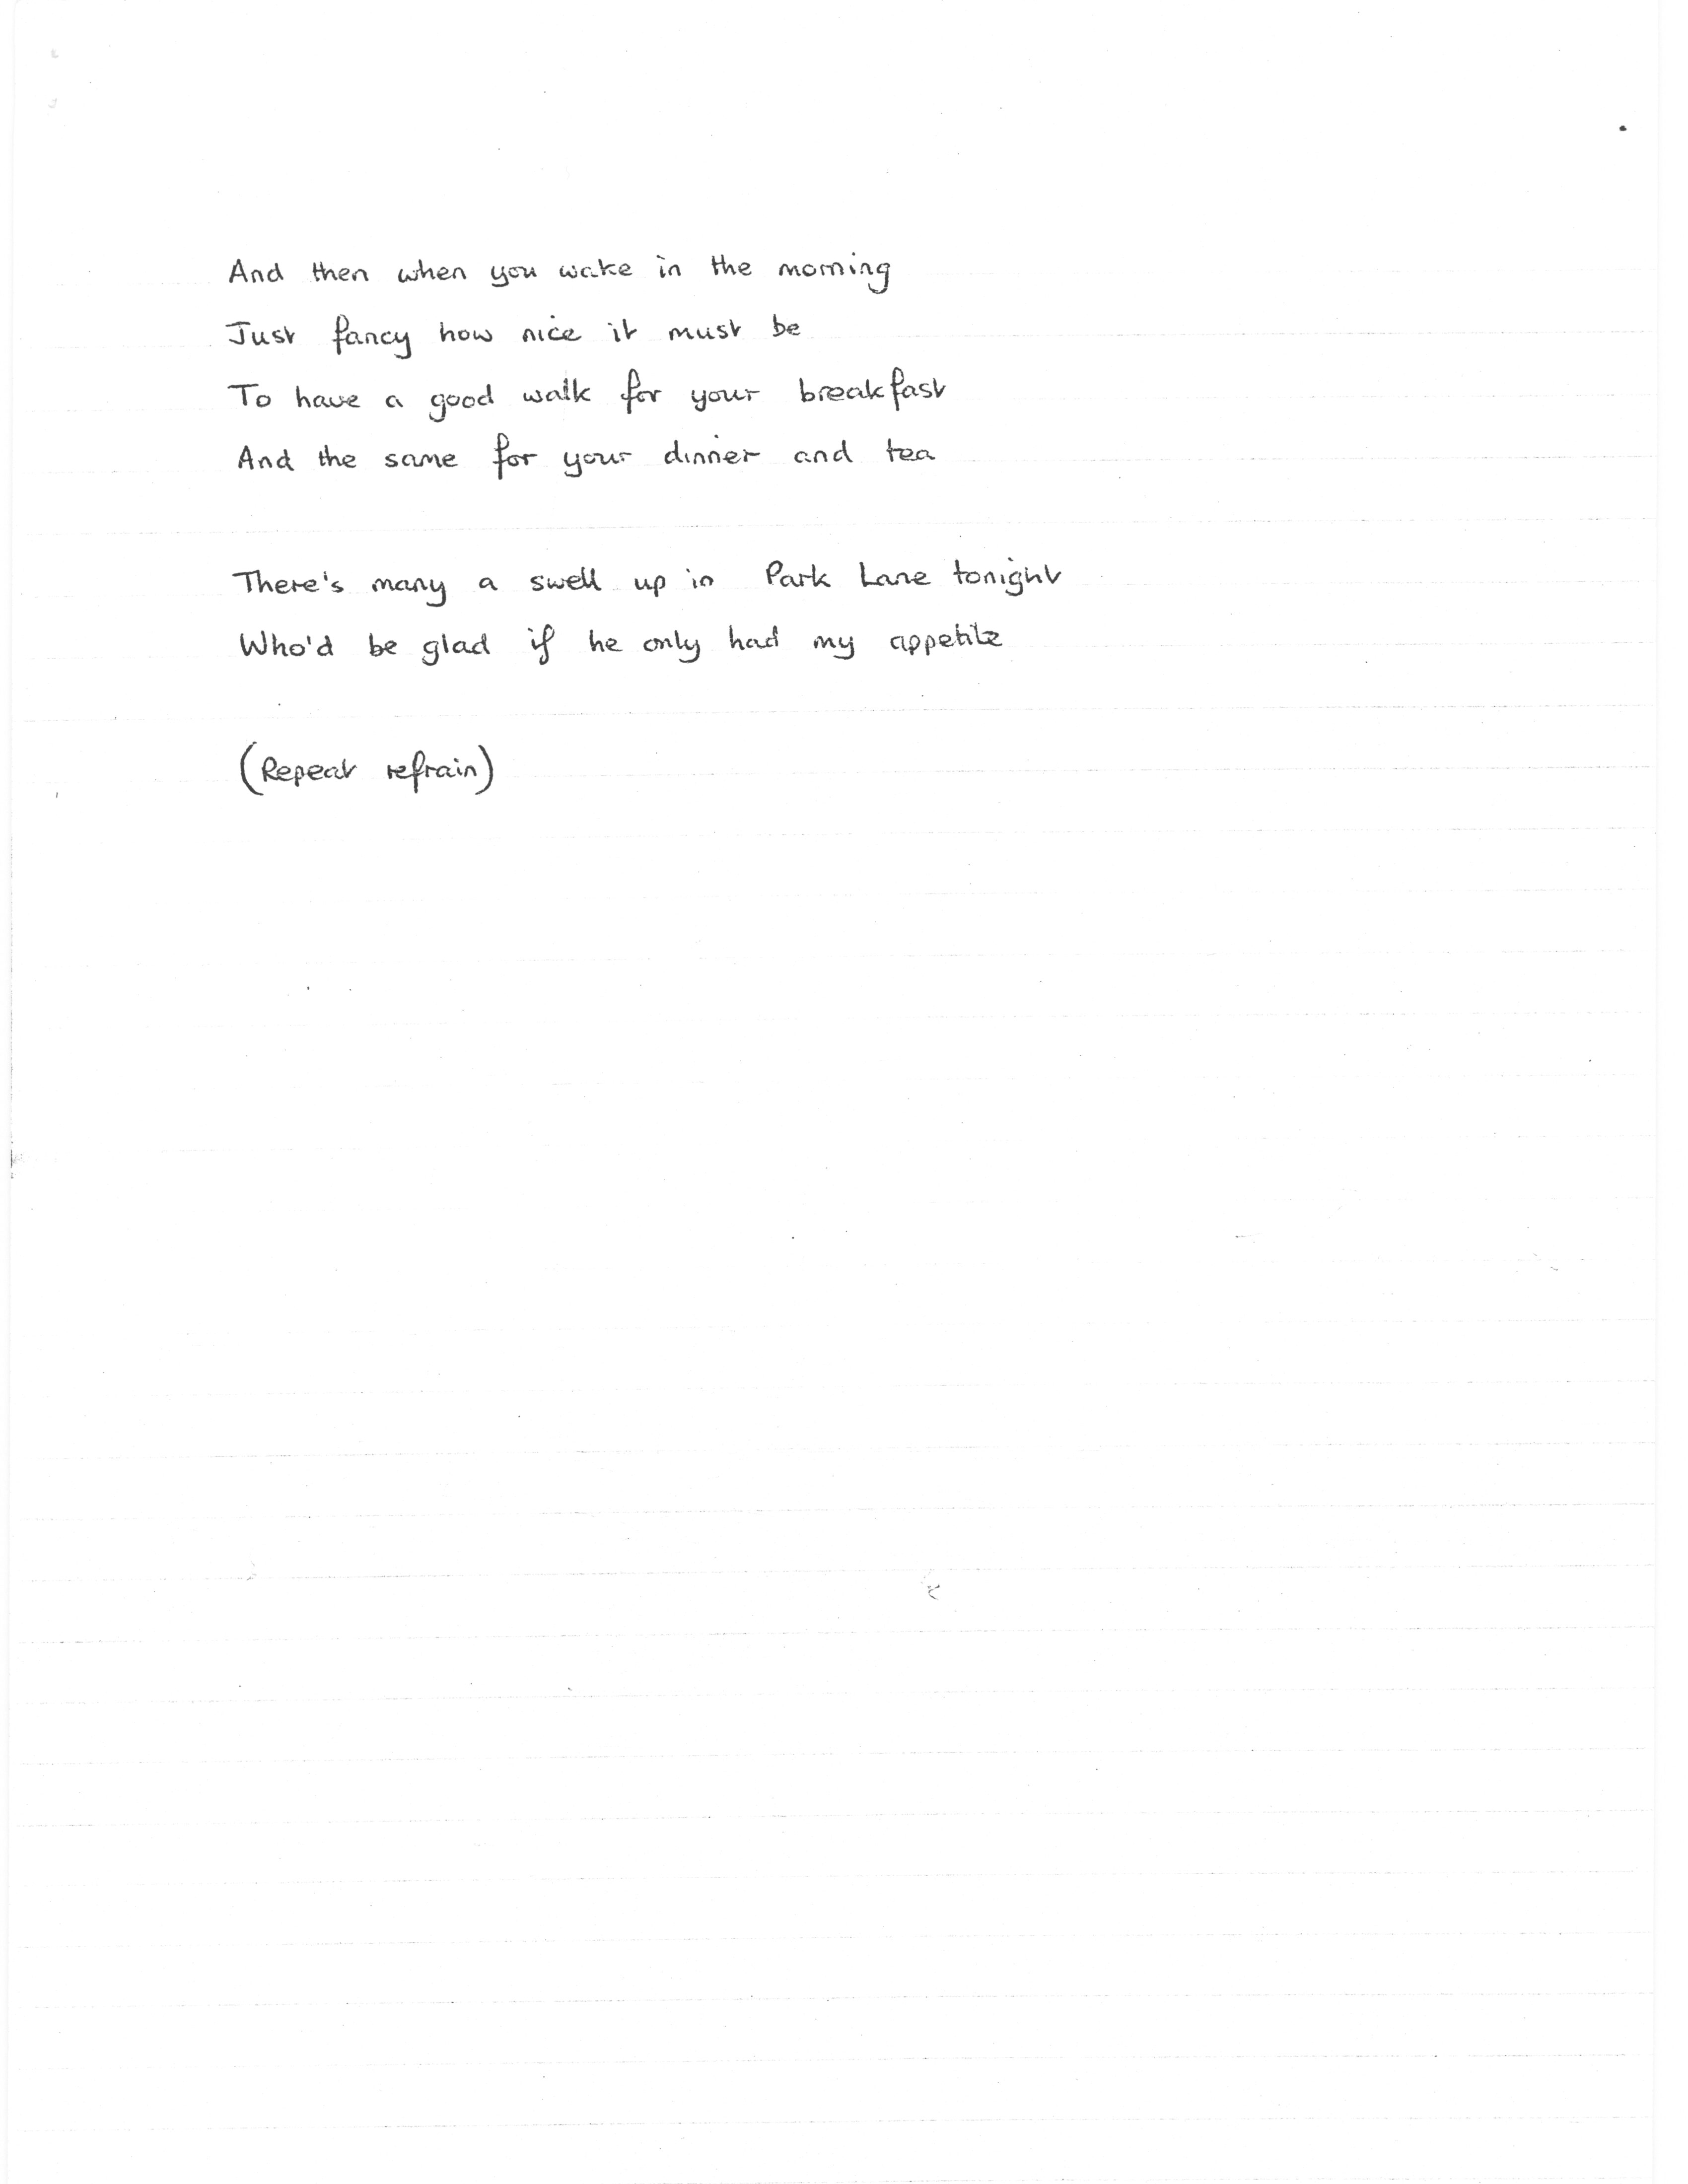 And then when you wake in the morning
Just fancy how nice it must be
To have a good walk for your breakfast
And the same for your dinner and tea
There's many a swell up in Park Lane tonight
Who'd be glad if he only had my appetite
(Repeat refrain)